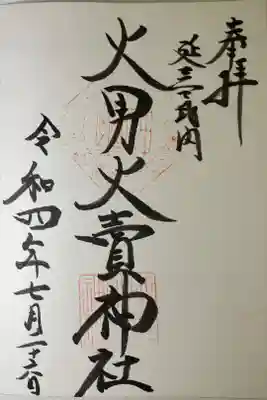 奉拝
延喜式内
火男火賣神社
令和四年七月二十六日